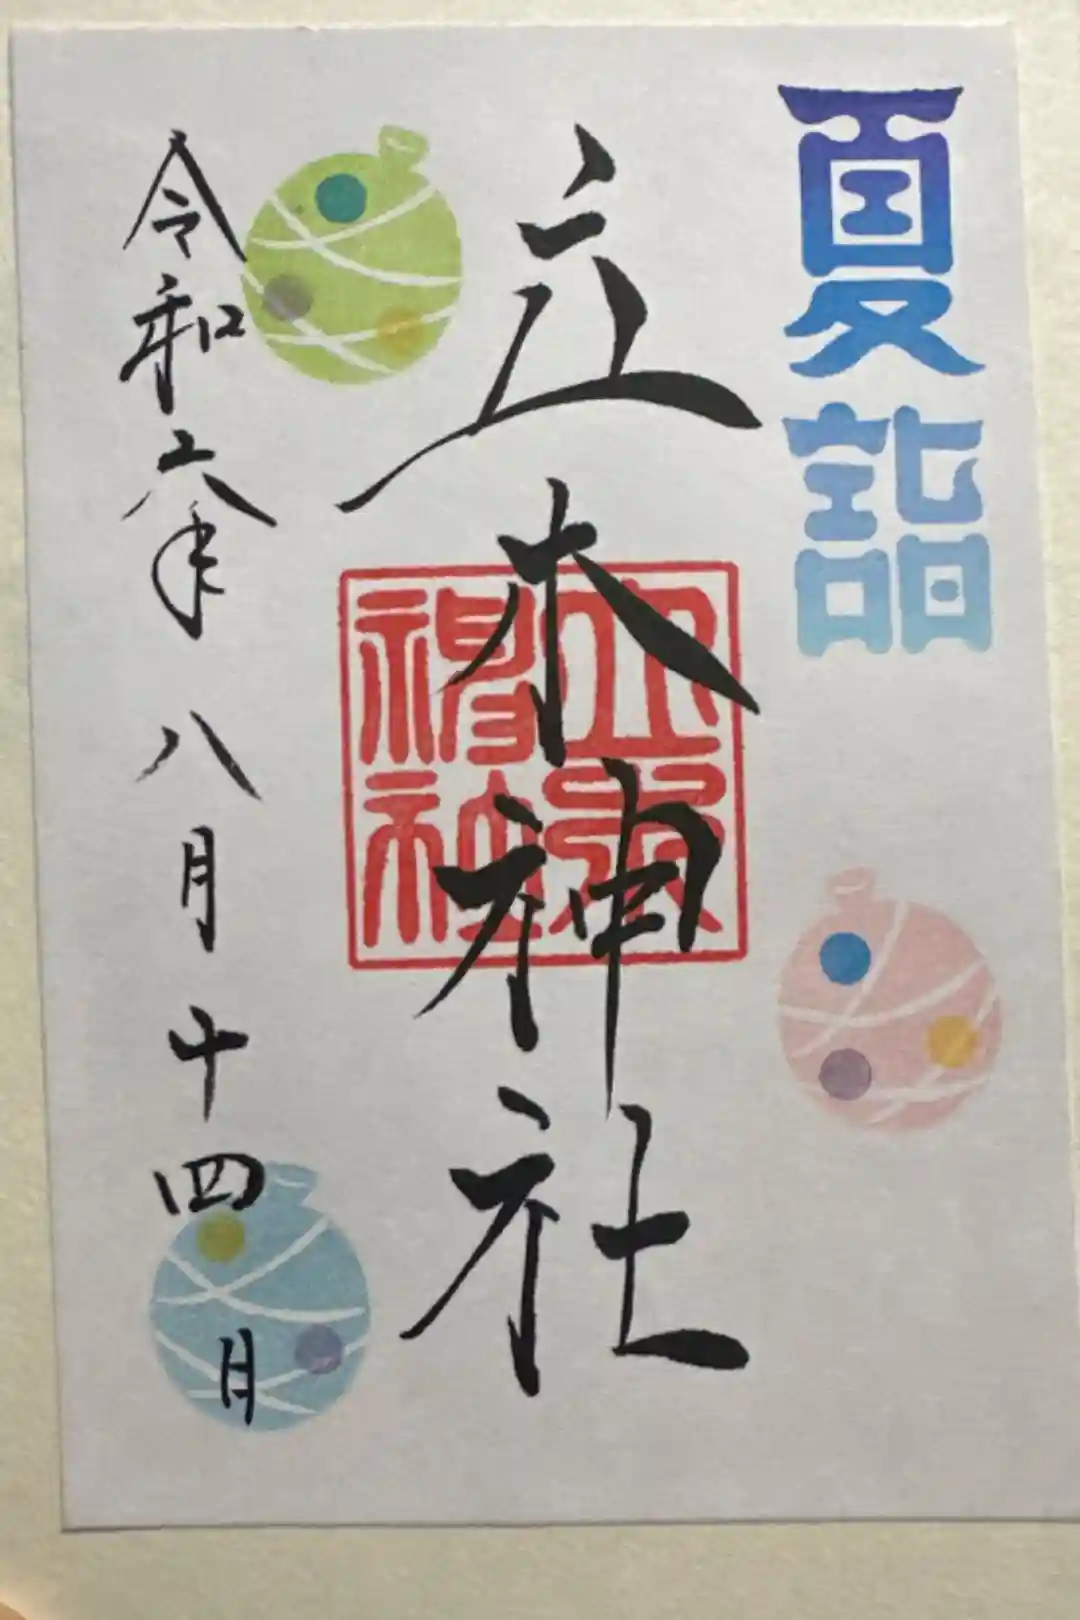 夏詣
立木神社
立木神社
令和六年八月十四日